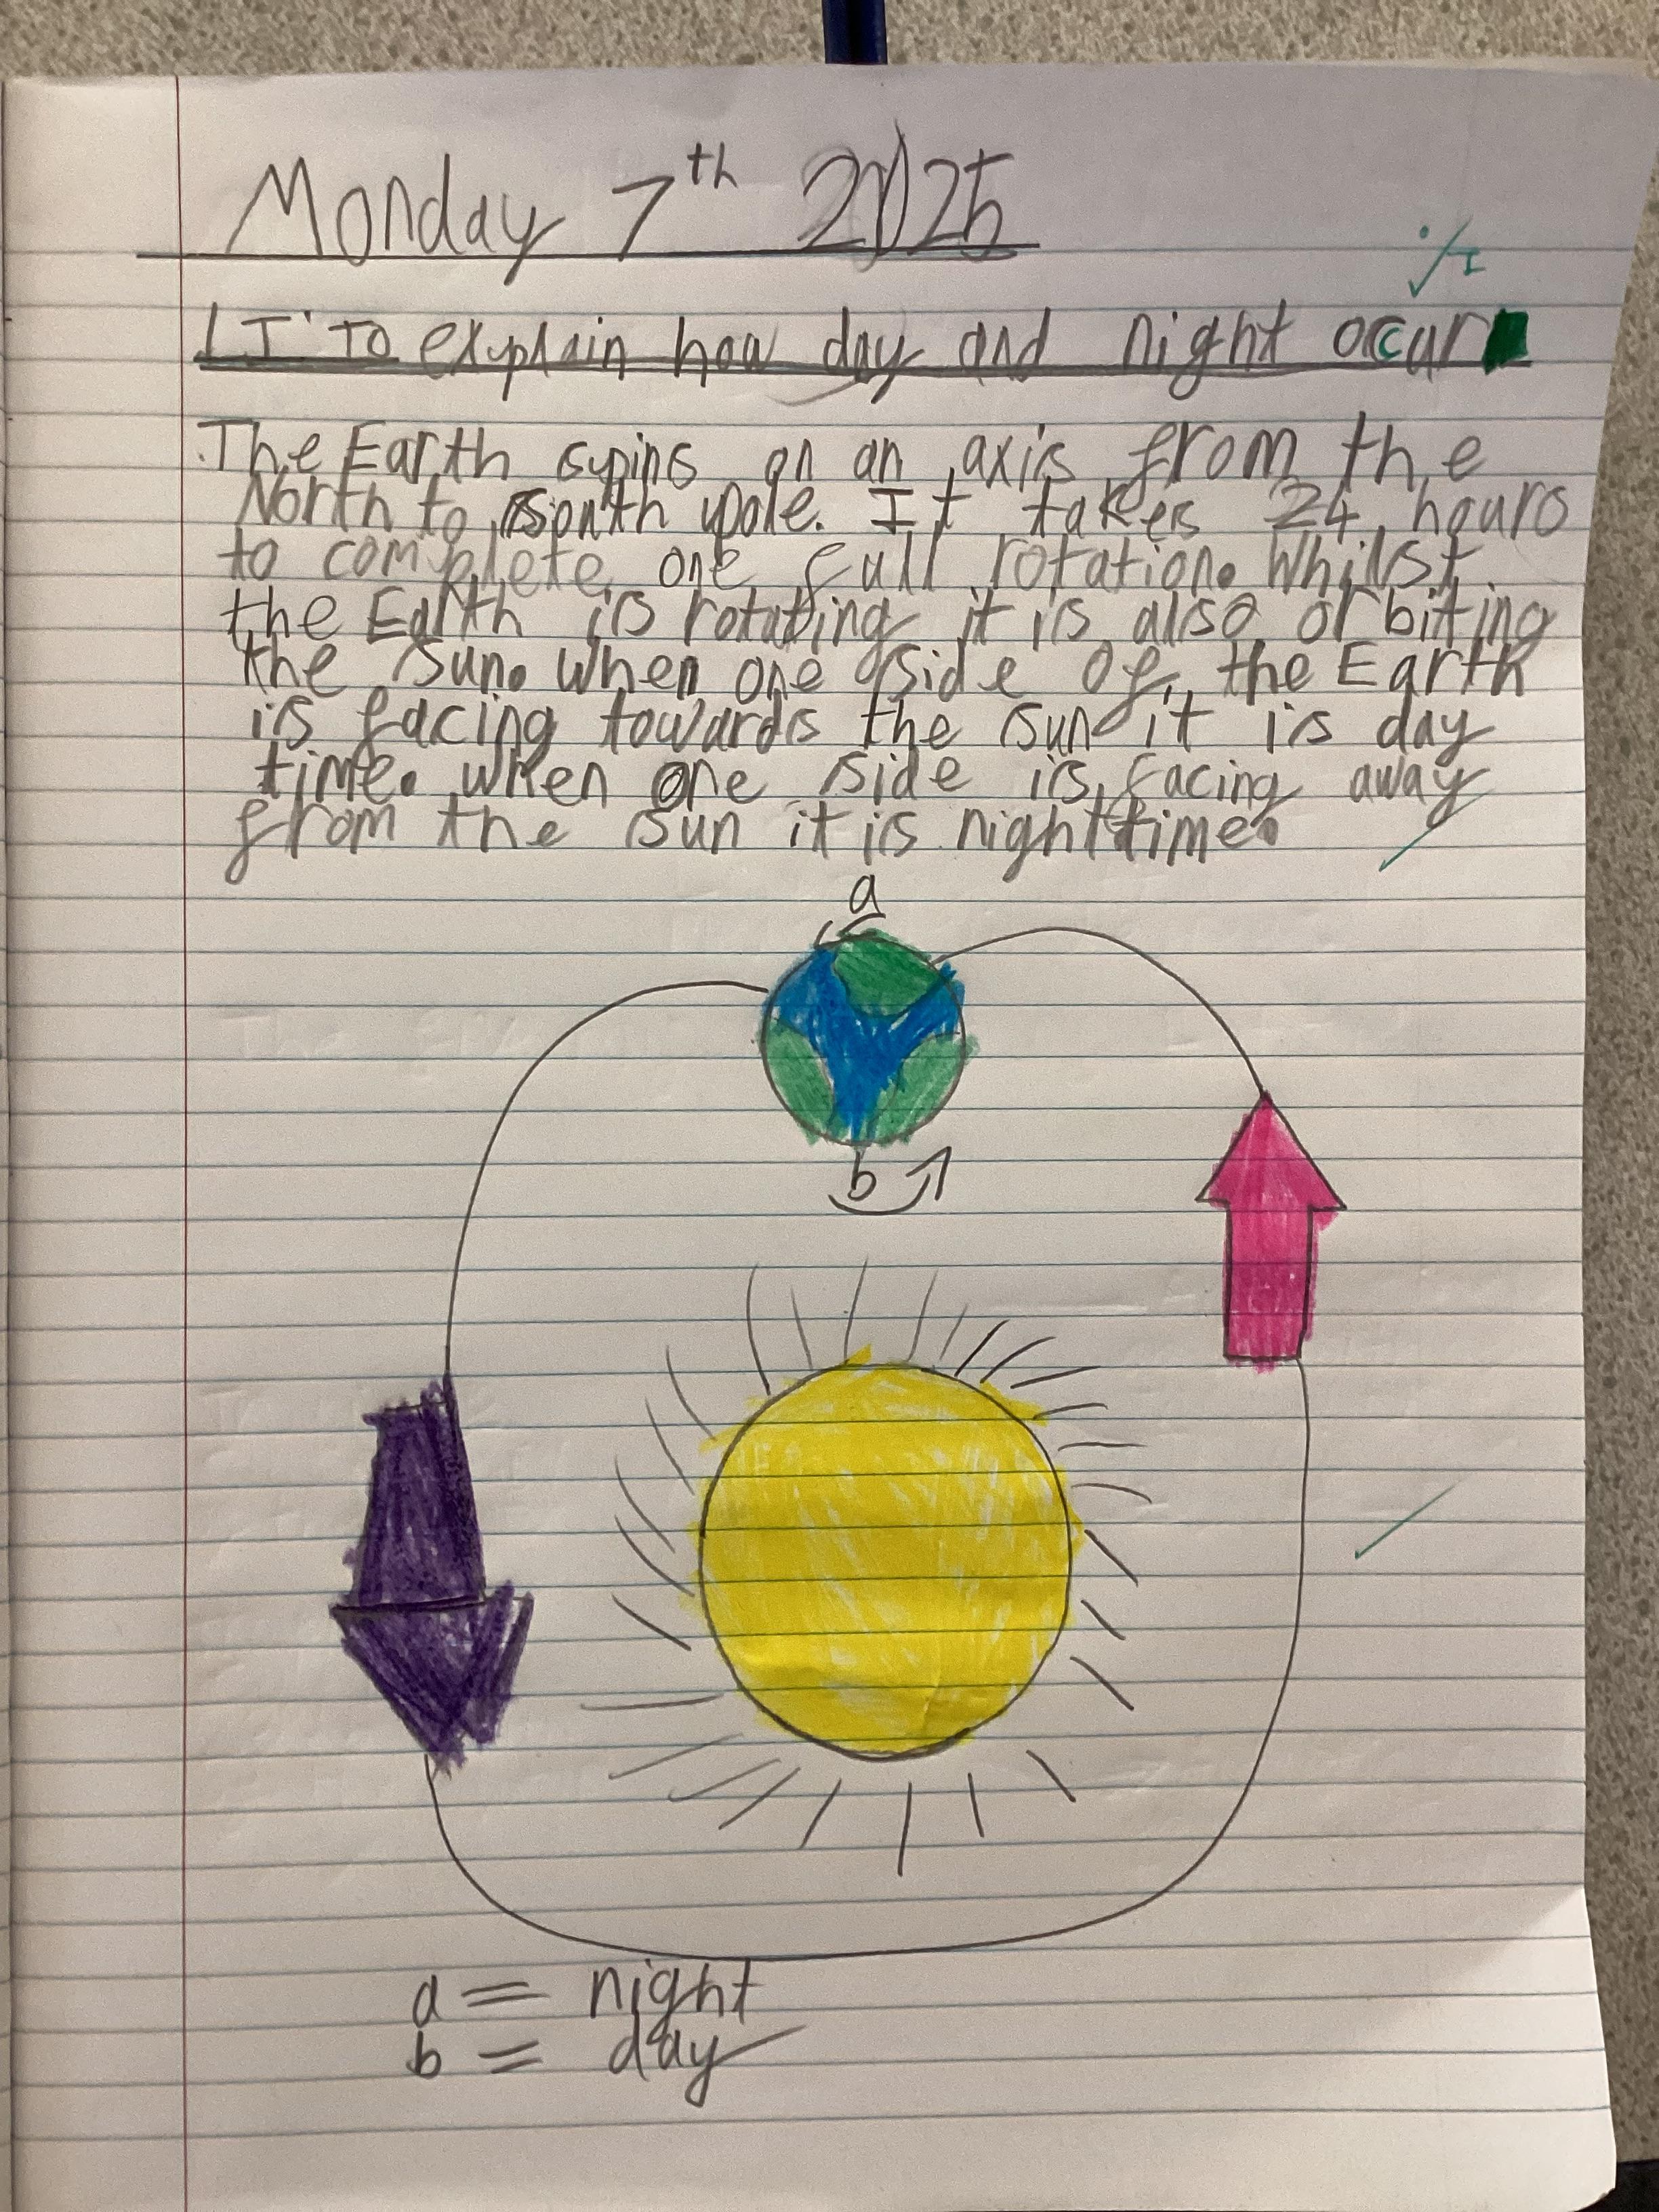 Monday 7th 2025
./I
LI: To explain how day and night occur
The Earth spins on an axis from the
North to South pole. It takes 24 hours
to complete one full rotation. Whilst
the Earth is rotating it is also orbiting
the Sun. When one side of the Earth
is facing towards the sun it is day
time. When one side is facing away
from the sun it is nighttime.
a
b
a = night
b = day